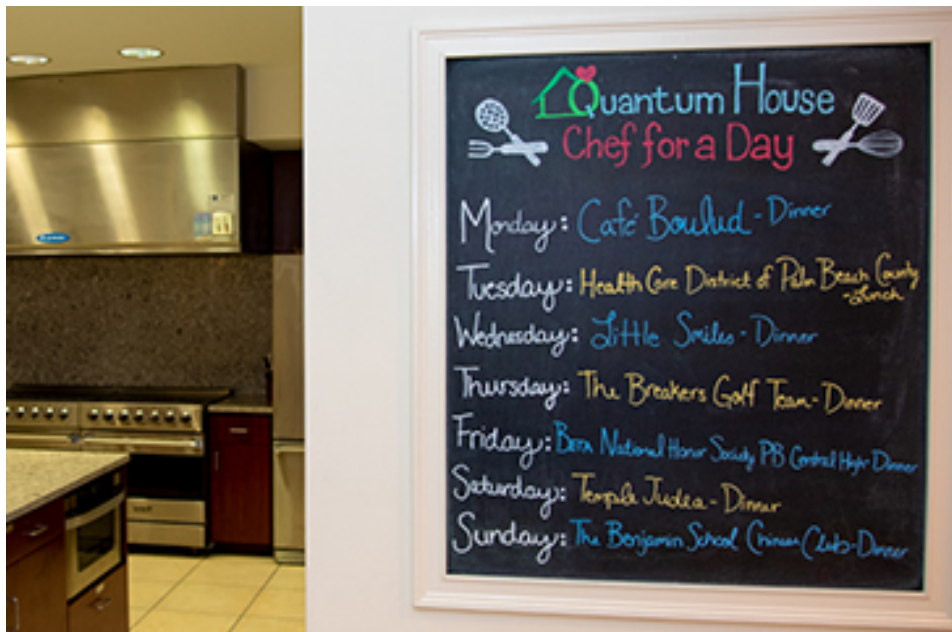 Quantum House
Chef for a Day
Monday: Café Boulud - Dinner
Tuesday: Health Care District of Palm Beach County
- Lunch
Wednesday: Little Smiles - Dinner
Thursday: The Breakers Golf Team - Dinner
Friday: Beta National Honor Society PB Central High - Dinner
Saturday: Temple Judea - Dinner
Sunday: The Benjamin School Chinese Club - Dinner